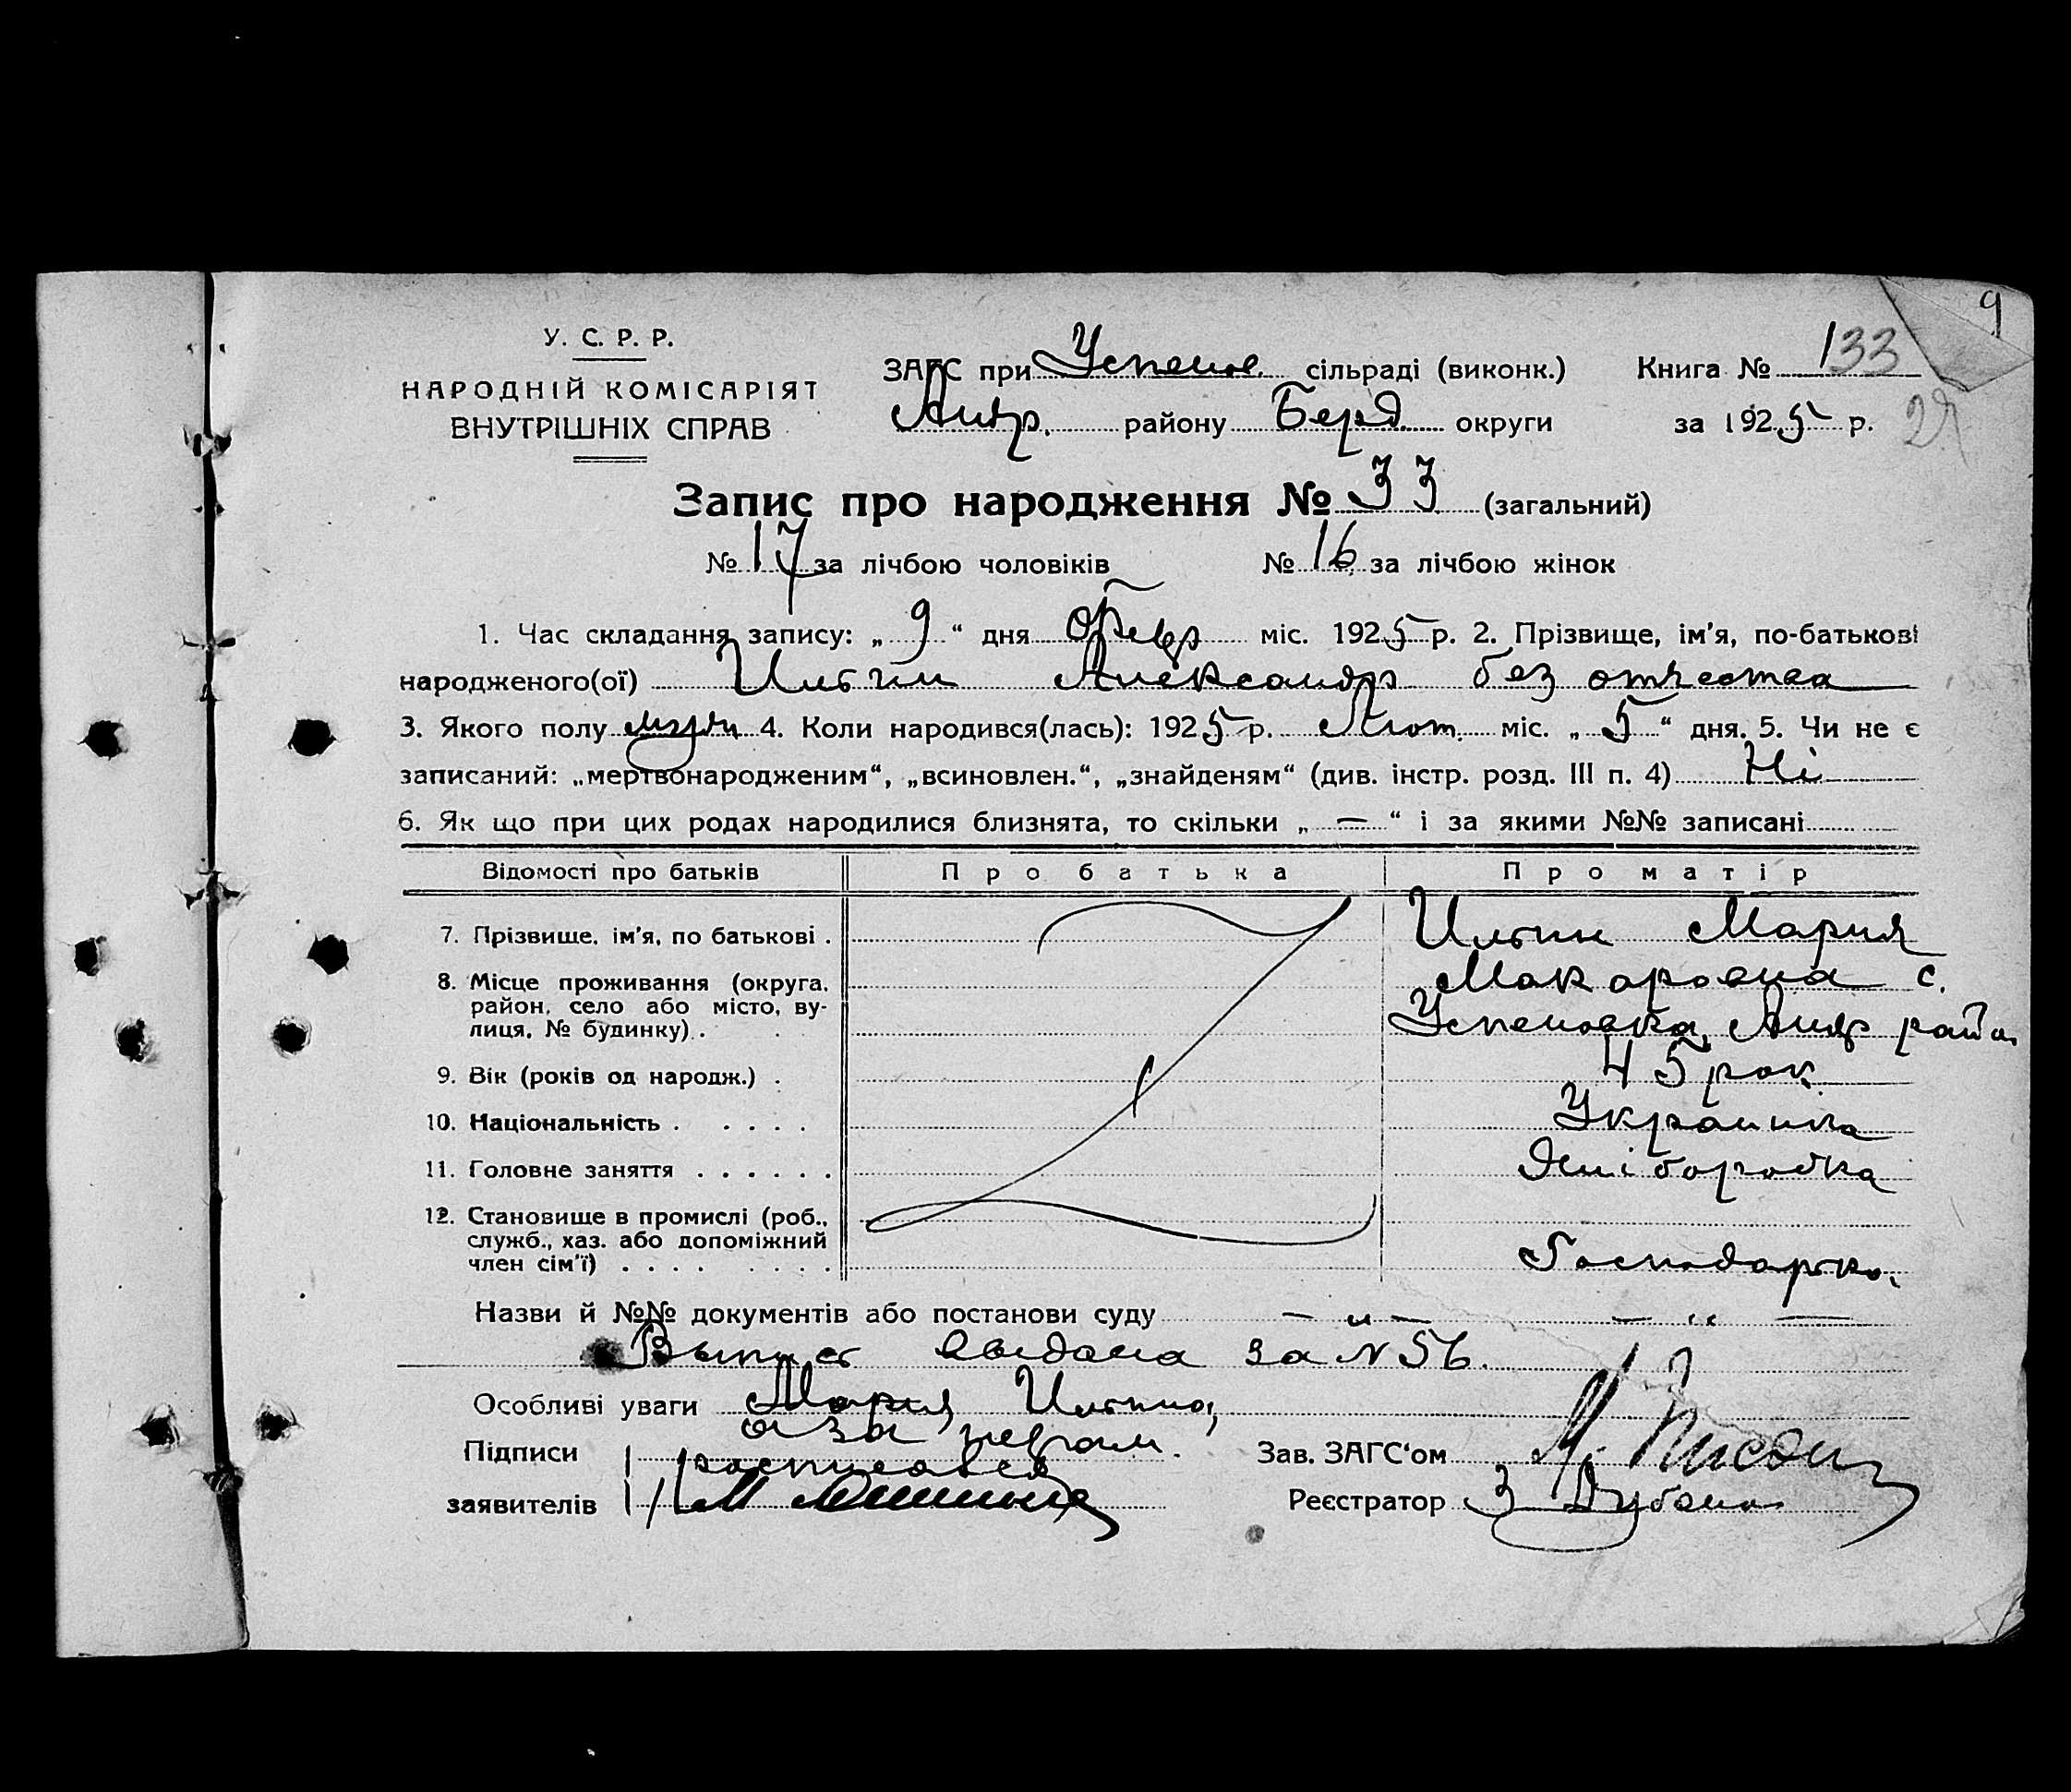 9
У. С. Р. Р.
НАРОДНІЙ КОМІСАРІЯТ
ВНУТРІШНІХ СПРАВ
ЗАГС при Успенов. сільраді (виконк.) Книга № 133
Андр. району Берд. округи за 1925 р.
Запис про народження № 33 (загальний)
№ 17 за лічбою чоловіків № 16 за лічбою жінок
1. Час складання запису: „ 9 “ дня Февр міс. 1925 р. 2. Прізвище, ім'я, по-батькові
народженого(ої) Ильгин Александр без отчества
3. Якого полу мужч 4. Коли народився(лась): 1925 р. Лют. міс. „ 5 “ дня. 5. Чи не є
записаний: „мертвонародженим“, „всиновлен.“, „знайденям“ (див. інстр. розд. III п. 4) Ні
6. Як що при цих родах народилися близнята, то скільки „ — “ і за якими №№ записані
Відомості про батьків Про батька Про матір
7. Прізвище, ім'я, по батькові . Мария
Макаровна с.
8. Місце проживання (округа, район, село або місто, ву-лиця, № будинку) . Успеновка Андр райо.
9. Вік (років од народж.) . 45 рок
10. Національність . . . . . Украинка
11. Головне заняття . . . . . . Хліборобка
12. Становище в промислі (роб., служб., хаз. або допоміжний член сім'ї) . . . . Господарка.
Назви й №№ документів або постанови суду — „ — — „ —
Выпись выдана за N 56.
Особливі уваги Мария
Підписи а за неграм. Зав. ЗАГС'ом
росписався
заявителів Реєстратор З